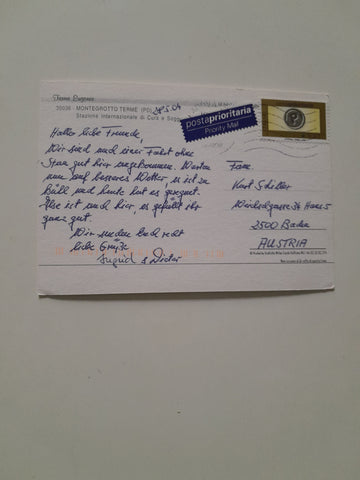 Terme Euganee
35036 - MONTEGROTTO TERME (PD)
Stazione Internazionale di Cura e Sogg
postaprioritaria
Priority Mail
Hallo liebe Freunde,
Wir sind nach einer Fahrt ohne
Stau gut hier angekommen. Warten
nun auf besseres Wetter, es ist zu
kühl und heute hat es geregnet.
Else ist auch hier, es gefällt ihr
ganz gut.
Wir melden bald
liebe Grüße
Ingrid & Dieter
Fam.
Kurt Schiller
2500 Baden
AUSTRIA